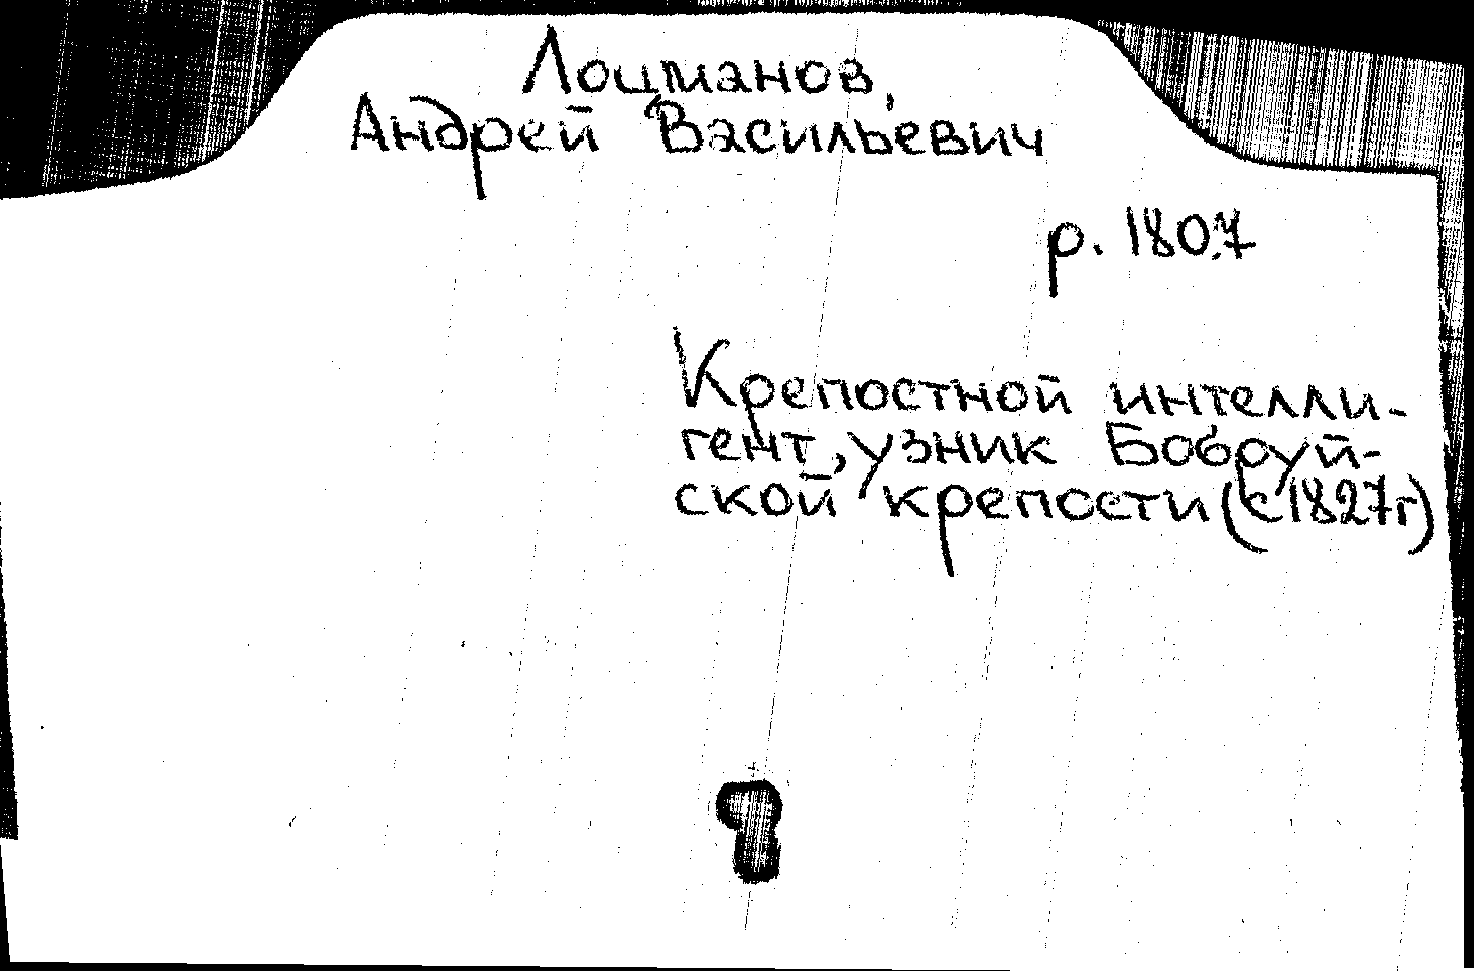 Лоцманов,
Андрей Васильевич
р. 1807
Крепостной интелли-
гент, узник Бобруй-
ской крепости (с 1827г)